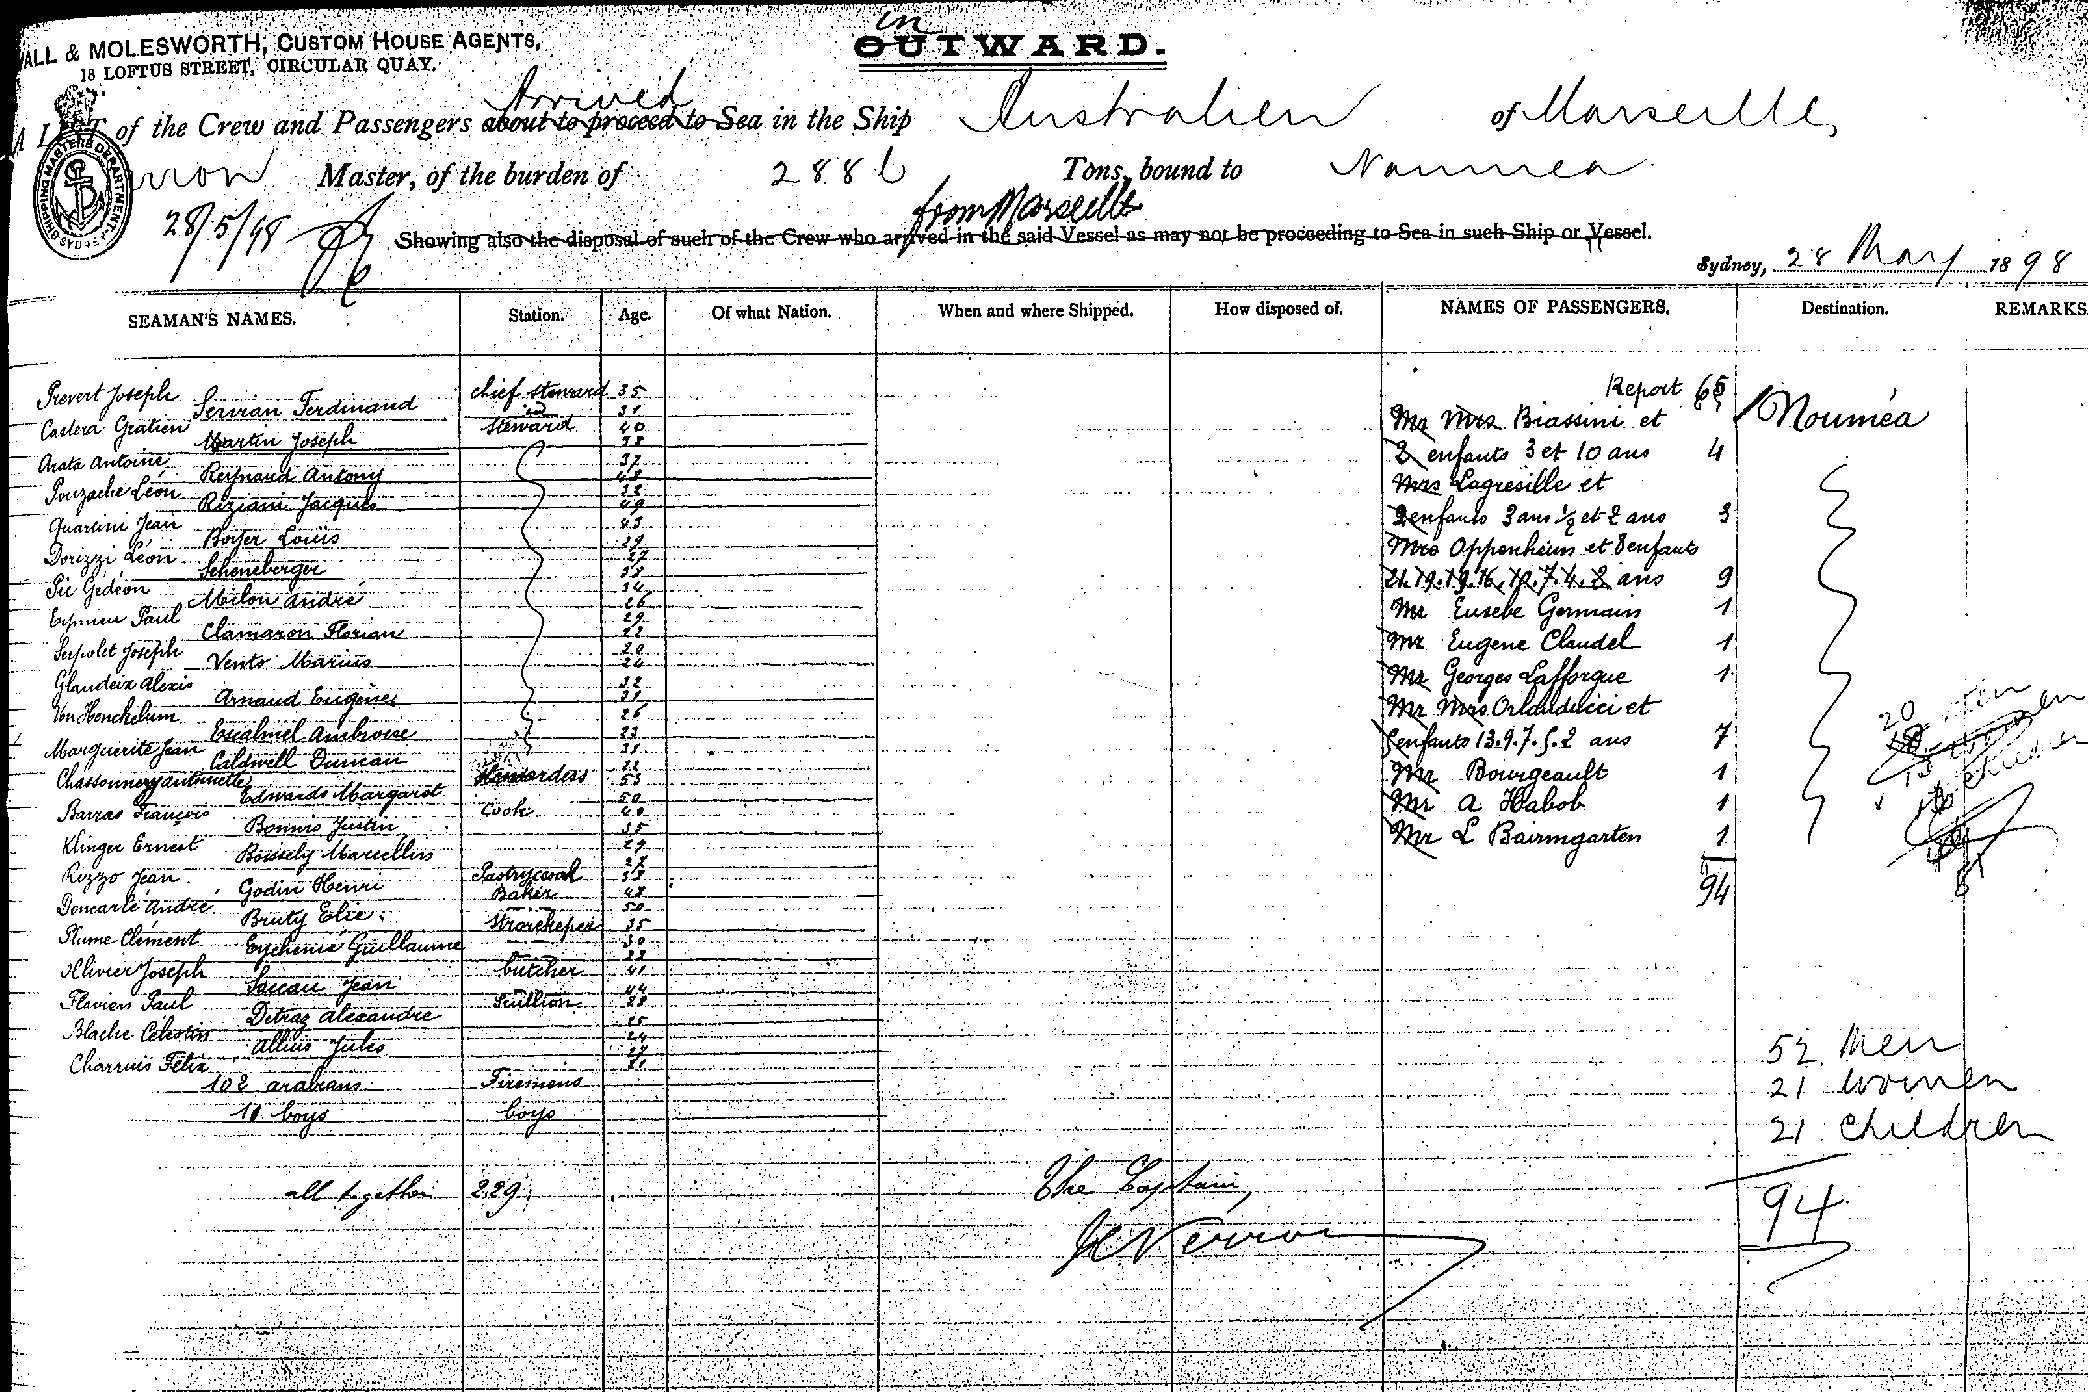 in
OUTWARD.
ALL & MOLESWORTH, CUSTOM HOUSE AGENTS,
18 LOFTUS STREET, CIRCULAR QUAY.
Arrived
A LIST of the Crew and Passengers about to proceed to Sea in the Ship Australien of Marseille,
Master, of the burden of 288 Tons, bound to Noumea
from Marseille
28/5/98
Showing also the disposal of such of the Crew who arrived in the said Vessel as may not be proceeding to Sea in such Ship or Vessel.
SHIPPING MASTERS DEPARTMENT SYDNEY
Sydney, 28 May 1898
SEAMAN'S NAMES. Station. Age. Of what Nation. When and where Shipped. How disposed of. NAMES OF PASSENGERS. Destination. REMARKS
Prevert Joseph chief steward 35
Servian Ferdinand 2d 31
Castera Gratien steward 40
Martin Joseph 38
Arata Antoine 37
Reynaud Antony
Pouzache Léon
Riziani Jacques 49
Quartini Jean 43
Boyer Louis 39
Dorizzi Léon 27
Scheneberger
Pic Gédéon 34
Milon André 26
Paul 29
Clamaron Florian 22
Serpolet Joseph 20
Vento Marius 24
Glaudeix Alexis 32
Arnaud Eugène 31
Von Henchelum 26
Escalmel Ambroise 23
Marguerite Jean 31
Caldwell Duncan 22
Chassonnery antoinette 53
Edwards Margaret 50
Barras François Cook 40
Bonnis Justin 35
Klinger Ernest 29
Boissely Marcellin
Rozzo Jean Pastrycook
Godin Henri Baker 48
Doncarle André 50
Bruty Elie Strorekeper 35
Plume Clément 30
Eychenié Guillaume
Olivier Joseph butcher 41
Saccau Jean 44
Flavien Paul Scullion
Detraz alexandre 25
Blache Celestin 24
Allius Jules
Charruis Félix
102 arabians Firemens
10 boys boys
all together 229
The Captain,
Verron
Report 65
Mr Mrs Biassini et
2 enfants 3 et 10 ans 4
Mrs Lagresille et
2 enfants 3 ans ½ et 2 ans 3
Mrs Oppenheim et 8 enfants
21.19.19.16.12.7.4.2 ans 9
Mr Eusebe Germain 1
Mr Eugene Claudel 1
Mr Georges Lafforgue 1
Mr Mrs Orlanducci et
5 enfants 13.9.7.5.2 ans 7
Mr Bourgeault 1
Mr A Habob 1
Mr L Baumgarten 1
94
Nouméa
20 men
women
children
52 Men
21 Women
21 Children
94